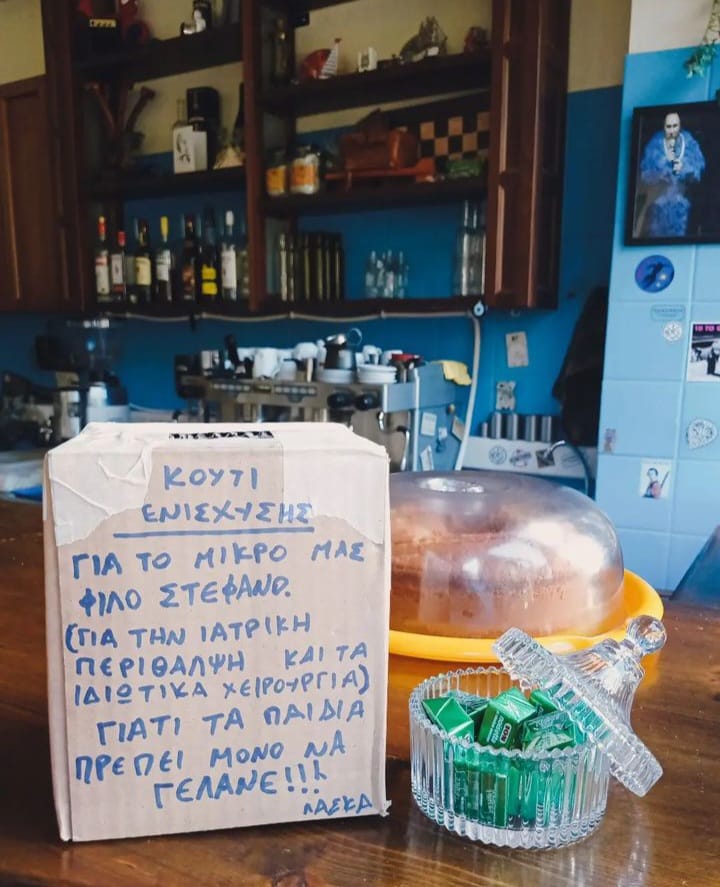 ΚΟΥΤΙ
ΕΝΙΣΧΥΣΗΣ
ΓΙΑ ΤΟ ΜΙΚΡΟ ΜΑΣ
ΦΙΛΟ ΣΤΕΦΑΝΟ.
(ΓΙΑ ΤΗΝ ΙΑΤΡΙΚΗ
ΠΕΡΙΘΑΛΨΗ ΚΑΙ ΤΑ
ΙΔΙΩΤΙΚΑ ΧΕΙΡΟΥΡΓΙΑ)
ΓΙΑΤΙ ΤΑ ΠΑΙΔΙΑ
ΠΡΕΠΕΙ ΜΟΝΟ ΝΑ
ΓΕΛΑΝΕ!!!
ΛΑΣΚΑ